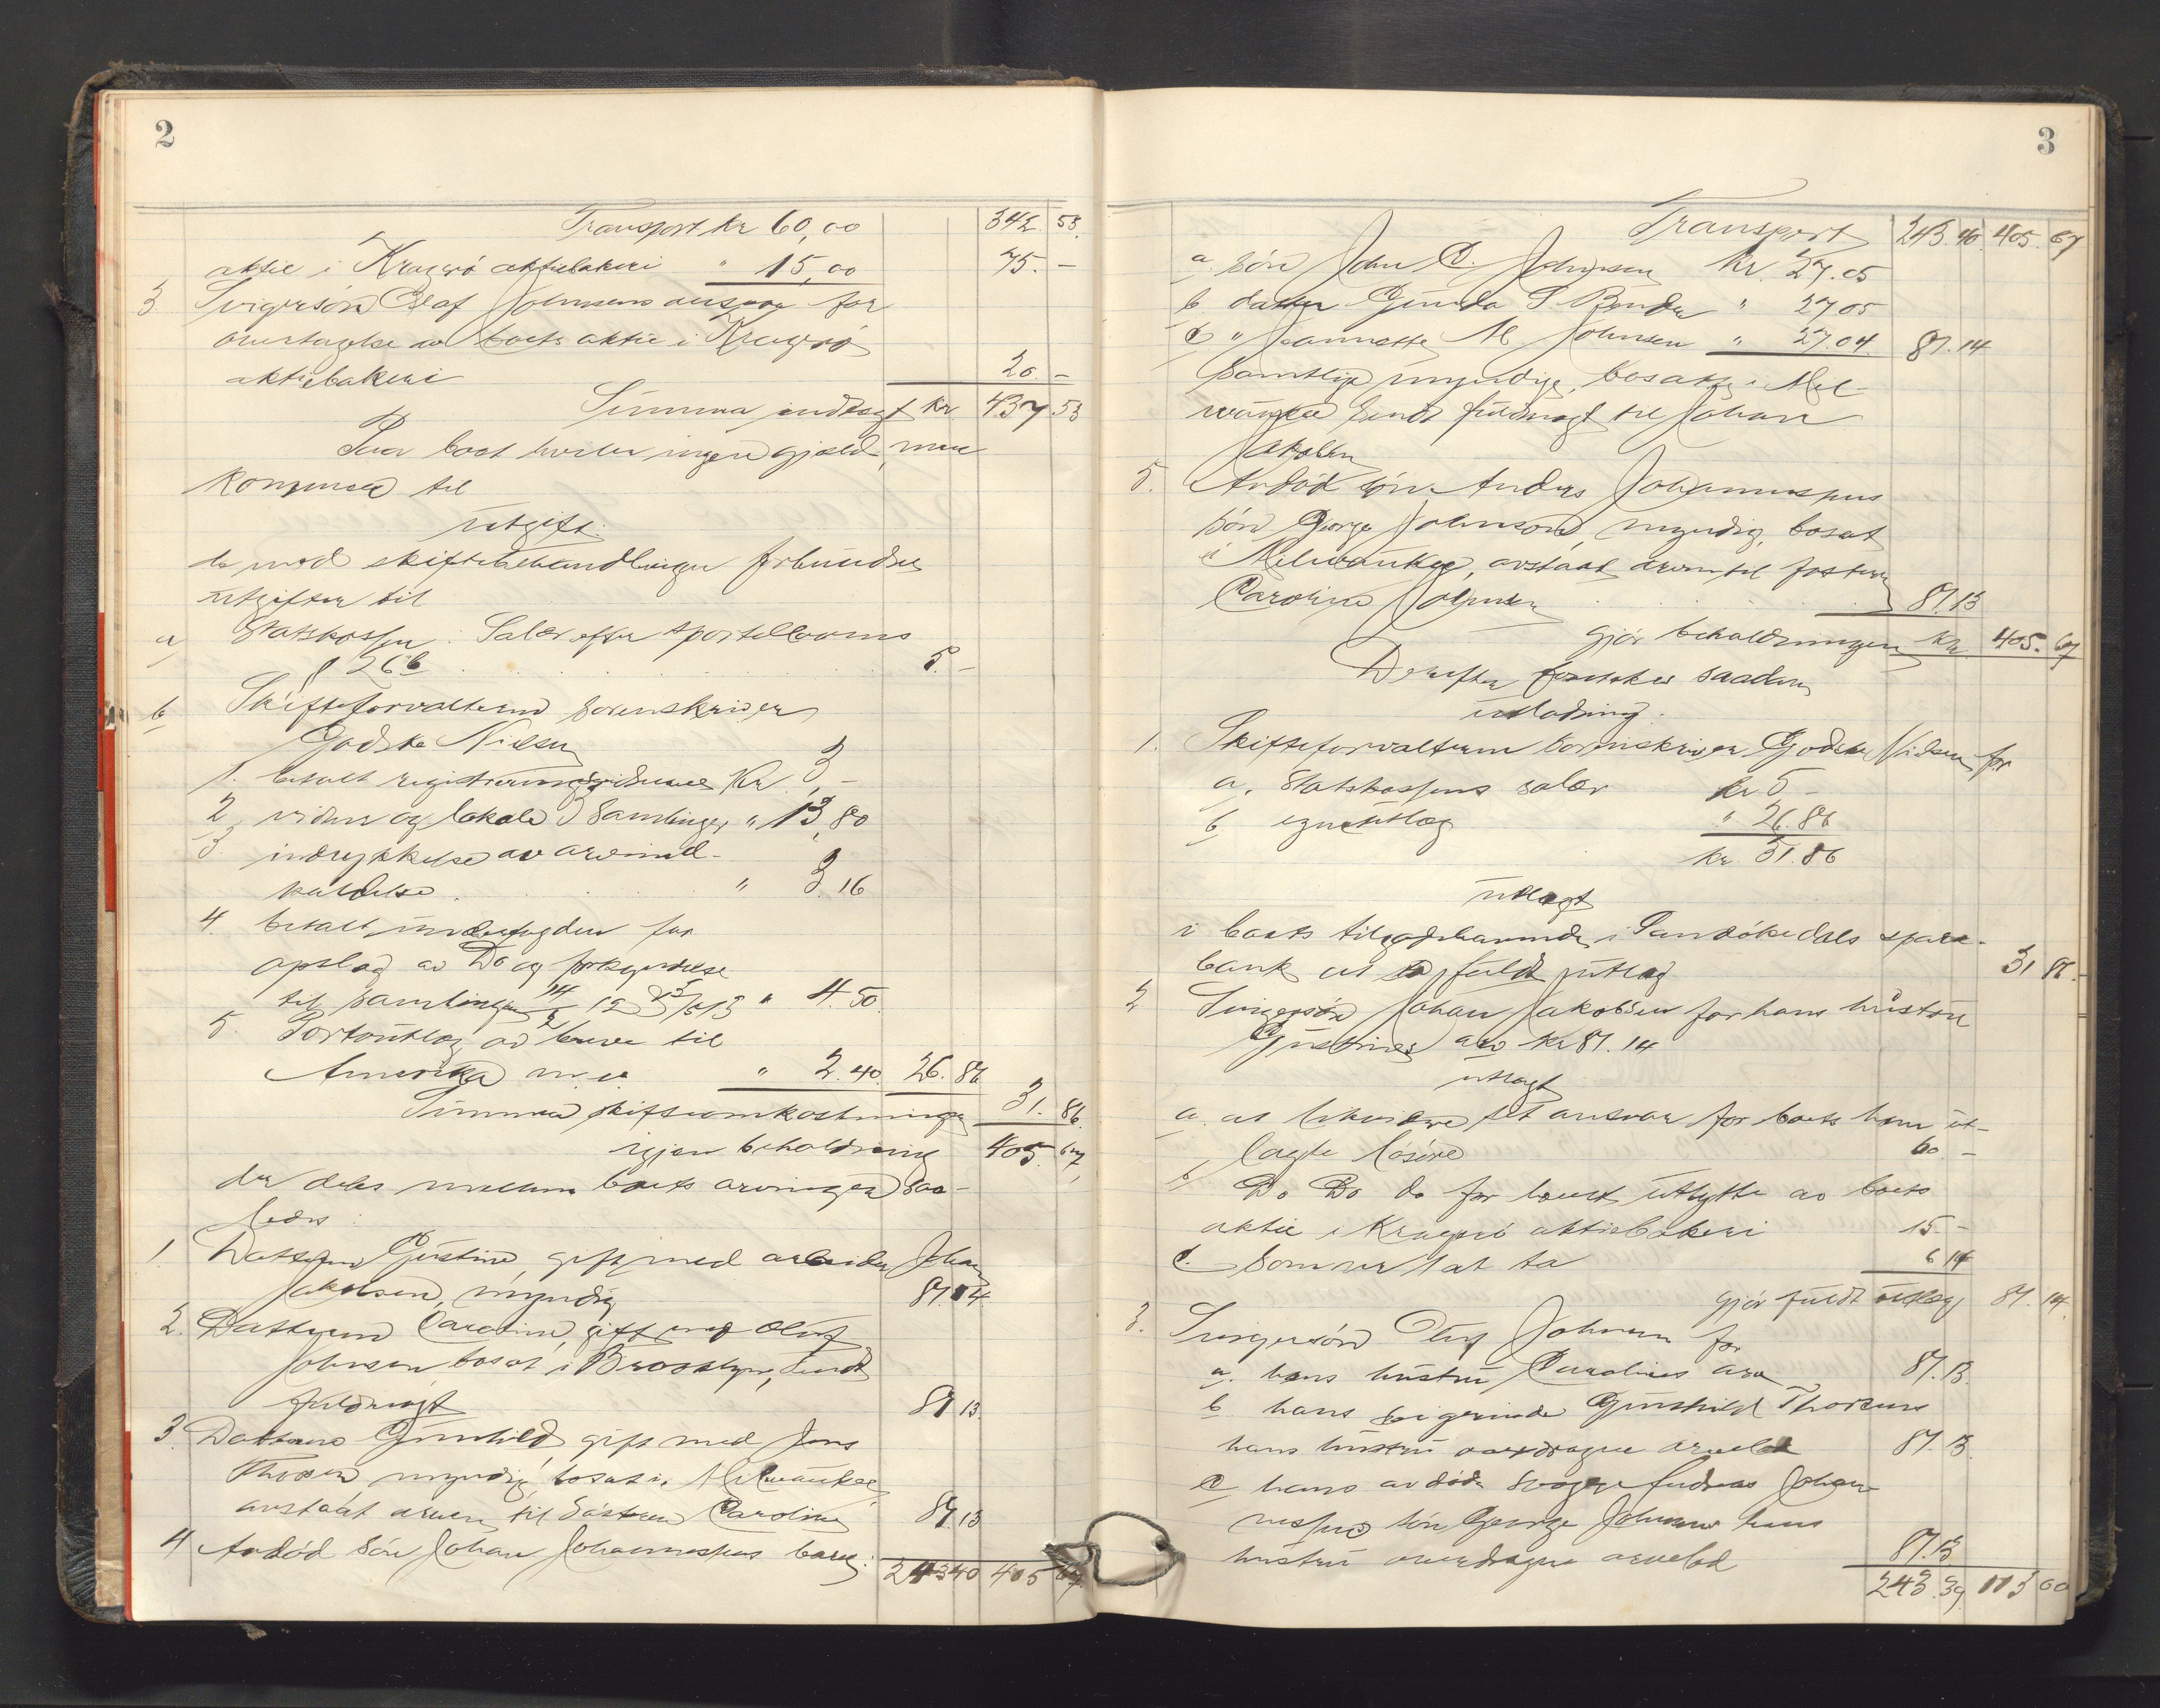 2
Transport kr 60,00 342. 53.
aktie i Kragerö aktiebakeri " 15,00 75. -
3. Svigersön Olaf Johnsens ansvar for
overtagelse av boets aktie i Kragerö
aktiebakeri 20. -
Summa indtægt kr 437. 53
Paa boet hviler ingen gjæld, men
kommer til
utgift:
de med skiftebehandlingen forbundne
utgifter til
a Statskassen: Salær efter sportellovens
§ 26 b 5. -
b Skifteforvalteren sorenskriver
Godske Nielsen
1. betalt registreringsvidnene Kr. 3, -
2 vidner og lokale 3 samlinger " 13,80
3. indrykkelse av arveind-
kaldelse " 3.16
4. betalt underfogden for
opslag av Do og forkyndelse
til samlingen 4.50
5. Portoutlæg av breve til
Amerika m.v. " 2.40. 26. 86
Summa skifteomkostninger 31. 86.
igjen beholdning 405. 67,
der deles mellem boets arvinger saa-
ledes:
1. Datteren Gustine, gift med arbeider Johan
Jakobsen, myndig 81.14
2. Datteren Caroline, gift med Oluf
Johnsen bosat i Brooklyn, sendt
fuldmagt 81.13.
3. Datteren Gunhild, gift med Jens
Thorsen, myndig, bosat i Milwaukee
avstaat arven til söstren Caroline 81.13
4 Avdöd sön Johan Johannessens barn:
243 40 405 67.
3
Transport 243. 40. 405. 67
a. sön John C. Johnsen kr. 27.05
b datter Gunda S Bender " 27.05
c " Jannette M Johnsen " 27.04. 81.14
samtlige myndige, bosatte i Mil-
waukee sendt fuldmagt til Johan
Jakobsen
5. Avdöd sön Anders Johannessens
sön George Johnson, myndig, bosat
i Milwaukee, avstaat arven til faster
Caroline Johnsen 81.13
gjör beholdningen kr. 405. 67
Derefter foretokes saadan
utlodning:
1. Skifteforvalteren sorenskriver Godske Nielsen for
a. Statskassens salær kr 5 -
b egne utlæg " 26.86
kr. 31.86
utlagt
i boets tilgodehavende i Sandökedals spare-
bank til fuldt utlæg 31 86.
2 Svigersön Johan Jakobsen for hans hustru
Gustines arv kr 81.14
utlagt
a. at likvidere sit ansvar for boets ham ut-
lagte lösöre 60. -
b Do Do do for utlyste av boets
aktie i Kragerö aktiebakeri 15 -
c. Sommerlat ta 6 14
gjör fuldt utlæg 81. 14.
3. Svigersön Oluf Johnsen for
a. hans hustru Carolines arv 81.13.
b hans svigerinde Gunhild Thorsens
hans hustru overdragne arvelod 81.13.
c hans avdöde svoger Andreas Johan-
nessens sön George Johnsens hans
hustru overdragne arvelod 81.13.
243.39. 113 00